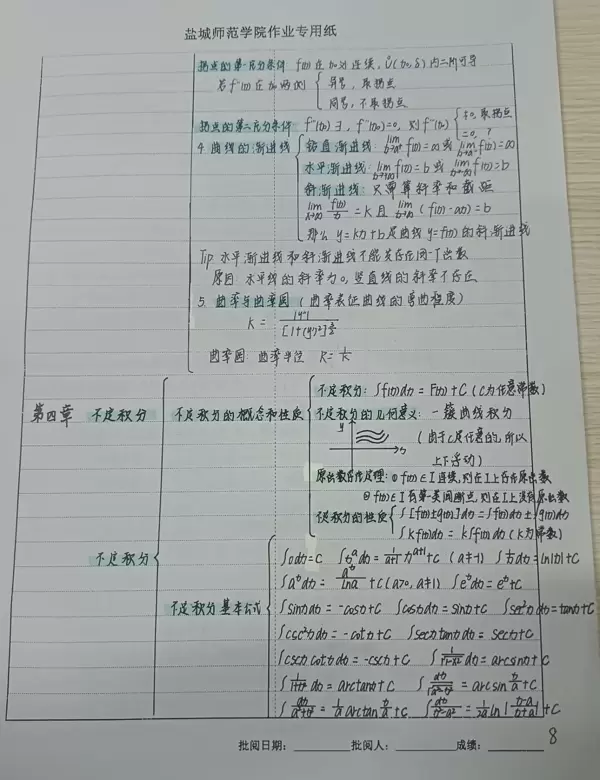 盐城师范学院作业专用纸
拐点的第一充分条件 f(x)在x₀处连续,Ů(x₀,δ)内二阶可导
若f''(x)在x₀两侧 { 异号,取拐点
同号,不取拐点
拐点的第二充分条件 f''(x₀)=0, 则f'''(x₀) { ≠0,取拐点
=0, ?
4.曲线的渐进线 { 铅直渐进线: lim f(x)=∞ 或 lim f(x)=∞
水平渐进线: lim f(x)=b 或 lim f(x)=b
斜渐进线: 只需算斜率和截距
lim f(x)/x = k 且 lim (f(x)-ax)=b
那么 y=kx+b是曲线y=f(x)的斜渐进线
Tip 水平渐进线和斜渐进线不能共存在同一个函数
原因:水平线的斜率为0,竖直线的斜率不存在
5. 曲率与曲率圆 (曲率表征曲线的弯曲程度)
K = |y''| / [1+(y')²]^(3/2)
曲率圆: 曲率半径 R=1/K
第四章 不定积分
不定积分的概念和性质
不定积分: ∫f(x)dx = F(x)+C (C为任意常数)
不定积分的几何意义: 一簇曲线积分
y
x
(由于C是任意的,所以
上下浮动)
原函数存在定理: ① f(x)在I连续,则在I上存在原函数
② f(x)在I有第一类间断点,则在I上没有原函数
不定积分的性质 { ∫[f(x)±g(x)]dx = ∫f(x)dx ± ∫g(x)dx
∫kf(x)dx = k∫f(x)dx (k为常数)
不定积分
不定积分基本公式
∫0dx=C ∫xᵃdx = 1/(a+1) xᵃ⁺¹+C (a≠-1) ∫1/x dx = ln|x|+C
∫aˣdx = aˣ/lna +C (a>0, a≠1) ∫eˣdx = eˣ+C
∫sinxdx = -cosx+C ∫cosxdx = sinx+C ∫sec²xdx = tanx+C
∫csc²xdx = -cotx+C ∫secxtanxdx = secx+C
∫cscxcotxdx = -cscx+C ∫1/√(1-x²) dx = arcsinx+C
∫1/(1+x²) dx = arctanx+C ∫dx/√(a²-x²) = arcsin x/a +C
∫dx/(a²+x²) = 1/a arctan x/a +C ∫dx/(x²-a²) = 1/2a ln|(x-a)/(x+a)|+C
批阅日期: 批阅人: 成绩: 8